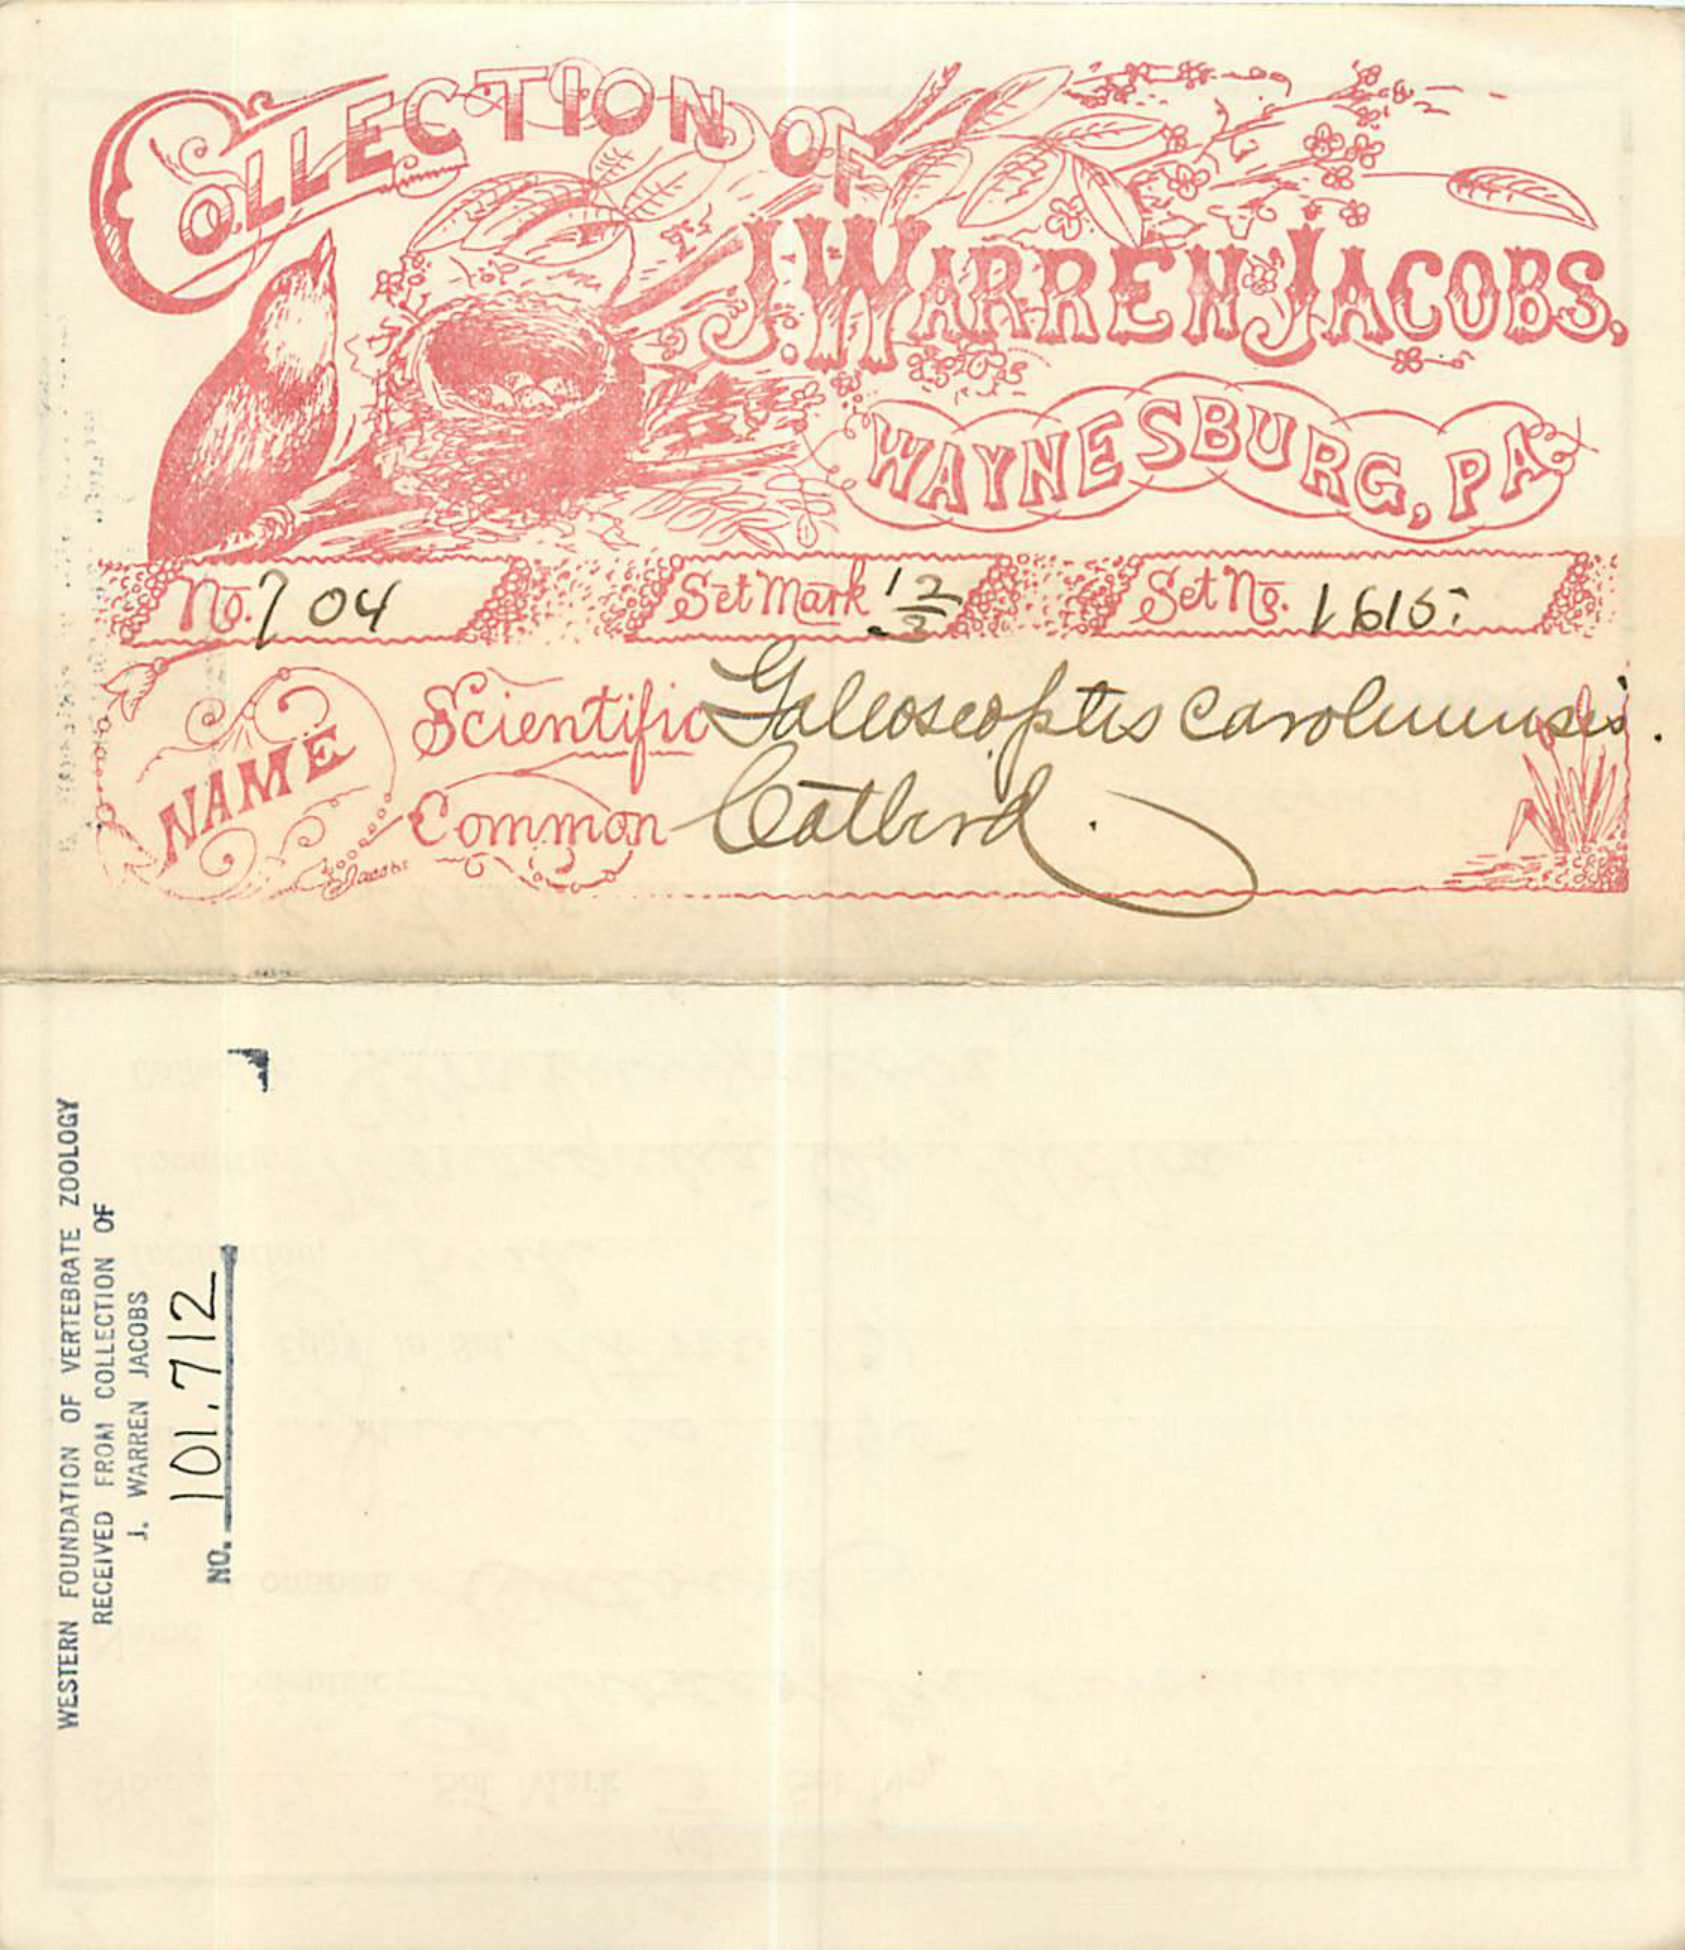 COLLECTION OF
J. WARREN JACOBS,
WAYNESBURG, PA.
No. 704 Set Mark 12/3 Set No. 1615.
NAME
Scientific Galeoscoptes carolinensis.
Common Catbird.
Jacobs
WESTERN FOUNDATION OF VERTEBRATE ZOOLOGY
RECEIVED FROM COLLECTION OF
J. WARREN JACOBS
NO. 101,712